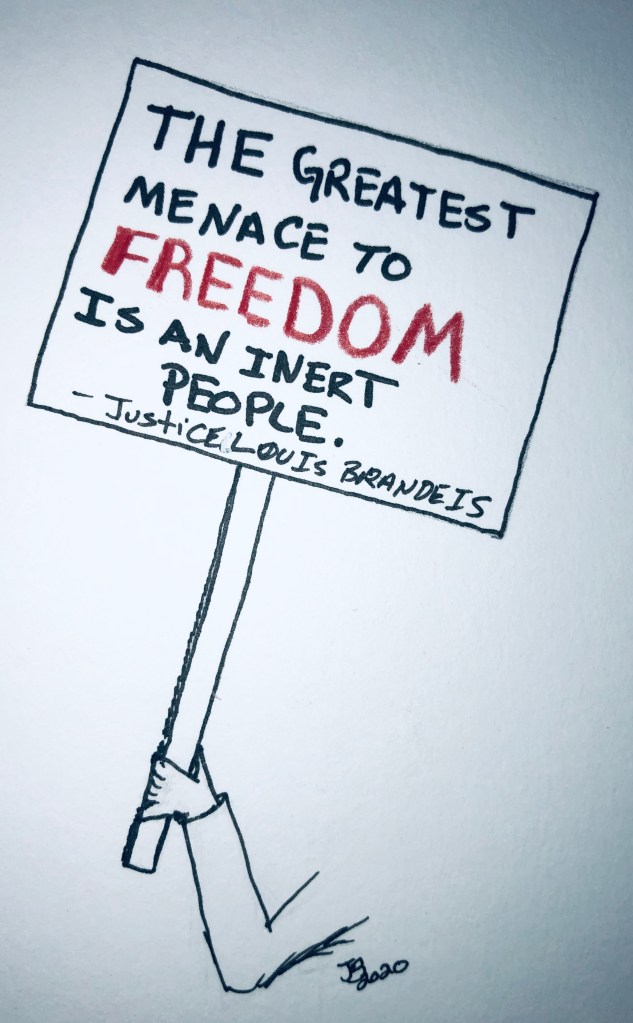 THE GREATEST
MENACE TO
FREEDOM
IS AN INERT
PEOPLE.
- JUSTiCE LOUIS BRANDEIS
JB 2020